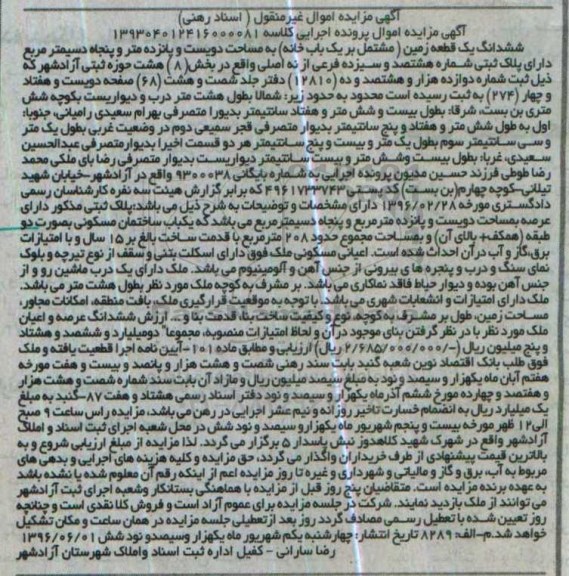 آگهی مزایده اموال غیرمنقول ( اسناد رهنی)
آگهی مزایده اموال پرونده اجرایی کلاسه ۱۳۹۳۰۴۰۱۲۴۱۶۰۰۰۰۸۱
ششدانگ یک قطعه زمین (مشتمل بر یک باب خانه) به مساحت دویست و پانزده متر و پنجاه دسیمتر مربع
دارای پلاک ثبتی شماره هشتصد و سیزده فرعی از نه اصلی واقع در بخش( ۸ ) هشت حوزه ثبتی آزادشهر که
ذیل ثبت شماره دوازده هزار و هشتصد و ده (۱۲۸۱۰) دفتر جلد شصت و هشت (۶۸) صفحه دویست و هفتاد
و چهار (۲۷۴) به ثبت رسیده است محدود به حدود زیر: شمالا بطول هشت متر درب و دیواریست بکوچه شش
متری بن بست، شرقا: بطول بیست و شش متر و هفتاد سانتیمتر بدیورا متصرفی بهرام سعیدی رامیانی، جنوبا:
اول به طول شش متر و هفتاد و پنج سانتیمتر بدیوار متصرفی قجر سمیعی دوم در وضعیت غربی بطول یک متر
و سی سانتیمتر سوم بطول یک متر و بیست و پنج سانتیمتر هر دو قسمت اخیرا بدیوار متصرفی عبدالحسین
سعیدی، غربا: بطول بیست وشش متر و بیست سانتیمتر دیواریست بدیوار متصرفی رضا بای ملکی محمد
رضا طوطی فرزند حسین مدیون پرونده اجرایی به شماره بایگانی ۹۳۰۰۰۳۸ واقع در آزادشهر-خیابان شهید
تیلانی-کوچه چهارم(بن بست) کد پستی ۴۹۶۱۷۳۳۷۴۳ که برابر گزارش هیئت سه نفره کارشناسان رسمی
دادگستری مورخه ۱۳۹۶/۰۲/۲۸ دارای مشخصات و توضیحات به شرح ذیل می باشد:پلاک ثبتی مذکور دارای
عرصه بمساحت دویست و پانزده مترمربع و پنجاه دسیمترمربع می باشد که یکباب ساختمان مسکونی بصورت دو
طبقه (همکف+ بالای آن) و بمساحت مجموع حدود ۲۰۸ مترمربع با قدمت ساخت بالغ بر ۱۵ سال و با امتیازات
برق،گاز و آب در آن احداث شده است. اعیانی مسکونی ملک فوق دارای اسکلت بتنی و سقف از نوع تیرچه و بلوک
نمای سنگ و درب و پنجره ها ی بیرونی از جنس آهن و آلومینیوم می باشد. ملک دارای یک درب ماشین رو و از
جنس آهن بوده و دیوار حیاط فاقد نماکاری می باشد. بر مشرف به کوچه ملک مورد نظر بطول هشت متر می باشد.
ملک دارای امتیازات و انشعابات شهری می باشد. با توجه به موقعیت قرارگیری ملک، بافت منطقه، امکانات مجاور،
مساحت زمین، طول بر مشرف به کوچه، نوع و کیفیت ساخت بنا، قدمت بنا و ... ارزش ششدانگ عرصه و اعیان
ملک مورد نظر با در نظر گرفتن بنای موجود در آن و لحاظ امتیازات منصوبه، مجموعا" دومیلیارد و ششصد و هشتاد
و پنج میلیون ریال (-/۲/۶۸۵/۰۰۰/۰۰۰ ریال) ارزیابی و مطابق ماده ۱۰۱-آیین نامه اجرا قطعیت یافته و ملک
فوق طلب بانک اقتصاد نوین شعبه گنبد بابت سند رهنی شصت و هشت هزار و پانصد و بیست و هفت مورخه
هفتم آبان ماه یکهزار و سیصد و نود به مبلغ سیصد میلیون ریال و مازاد آن بابت سند شماره شصت و هشت هزار
و هفتصد و چهارده مورخ ششم آذرماه یکهزار و سیصد و نود دفتر اسناد رسمی هشتاد و هفت ۸۷-گنبد به مبلغ
یک میلیارد ریال به انضمام خسارت تاخیر روزانه و نیم عشر اجرایی در رهن می باشد، مزایده راس ساعت ۹ صبح
الی۱۲ ظهر مورخه بیست و پنجم شهریور ماه یکهزارو سیصد و نود شش در محل شعبه اجرای ثبت اسناد و املاک
آزادشهر واقع در شهرک شهید کلاهدوز نبش پاسدار ۵ برگزار می گردد. لذا مزایده از مبلغ ارزیابی شروع و به
بالاترین قیمت پیشنهادی از طرف خریداران واگذار می گردد، حق مزایده و کلیه هزینه های اجرایی و بدهی های
مربوط به آب، برق و گاز و مالیاتی و شهرداری و غیره تا روز مزایده اعم از اینکه رقم آن معلوم شده یا نشده باشد
به عهده برنده مزایده است. متقاضیان پنج روز قبل از مزایده با هماهنگی بستانکار وشعبه اجرای ثبت آزادشهر
می توانند از ملک بازدید نمایند. شرکت در جلسه مزایده برای عموم آزاد است و فروش کلا نقدی است و چنانچه
روز تعیین شده با تعطیل رسمی مصادف گردد روز بعد از تعطیلی جلسه مزایده در همان ساعت و مکان تشکیل
خواهد شد.م-الف: ۸۲۸۹ تاریخ انتشار: چهارشنبه یکم شهریور ماه یکهزار وسیصدو نود شش ۱۳۹۶/۰۶/۰۱
رضا سارانی - کفیل اداره ثبت اسناد واملاک شهرستان آزادشهر